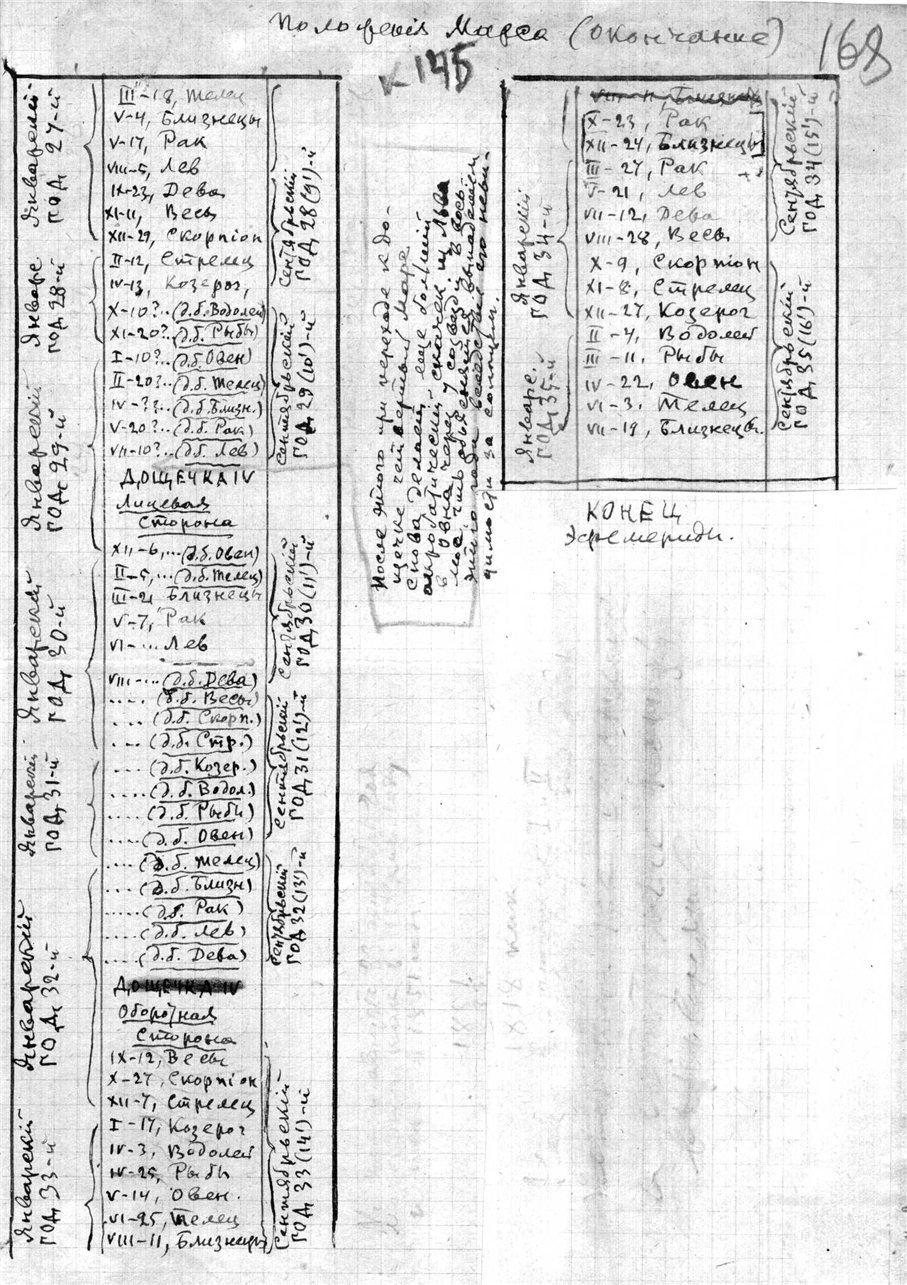 Положенія Марса (окончаніе)
168
к 145
Январскій
год 27-й
III-18, Телец
V-4, Близнецы
V-17, Рак
VIII-5, Лев
IX-23, Дева
XI-11, Весы
XII-29, Скорпіон
Сентябрьскій
год 28(9')-й
Январс
год 28-й
II-12, Стрелец
IV-13, Козерог,
X-10?..(д.б. Водолей)
XI-20?..(д.б. Рыбы)
Январскій
год 29-й
I-10?...(д.б. Овен)
II-20?..(д.б. Телец)
IV-??..(д.б. Близн.)
V-20?..(д.б. Рак)
VII-10?..(д.б. Лев)
Сентябрьскій
год 29(10')-й
ДОЩЕЧКА IV
Лицевая
Сторона
XII-6,...(д.б. Овен)
Январскій
год 30-й
II-5,...(д.б. Телец)
III-21 Близнецы
V-7, Рак
VI-... Лев
Сентябрьскій
год 30(11')-й
VIII-...(д.б. Дева)
....(д.б. Весы)
....(д.б. Скорп.)
....(д.б. Стр.)
Январскій
год 31-й
....(д.б. Козер.)
....(д.б. Водол.)
....(д.б. Рыбы)
....(д.б. Овен)
Сентябрьскій
год 31(12')-й
Январскій
год 32-й
....(д.б. Телец)
....(д.б. Близн)
....(д.б. Рак)
....(д.б. Лев)
....(д.б. Дева)
Сентябрьскій
год 32(13')-й
ДОЩЕЧКА IV
Оборотная
Сторона
IX-12, Весы
X-27, Скорпіон
XII-7, Стрелец
Январскій
год 33-й
I-17, Козерог
IV-3, Водолей
IV-25, Рыбы
V-14, Овен.
VI-25, Телец
VIII-11, Близнецы
Сентябрьскій
год 33(14')-й
После этого при переходе к до-
щечке четвертый Марс
снова делает еще больший
акробатический скачек из Льва
в Овна через 7 созвездий
за солнцем.
VIII-11, Близнецы
X-23, Рак
XII-24, Близнецы
Январскій
год 34-й
III-27, Рак
V-21, Лев
VII-12, Дева
VIII-28, Весы
Сентябрьскій
год 34(15')-й
X-9, Скорпіон
XI-8, Стрелец
XII-27, Козерог
Январс.
год 35-й
II-4, Водолей
III-11, Рыбы
IV-22, Овен
VI-3, Телец
VII-19, Близнецы.
Сентябрьскій
год 35(16')-й
КОНЕЦ
эфемериды.